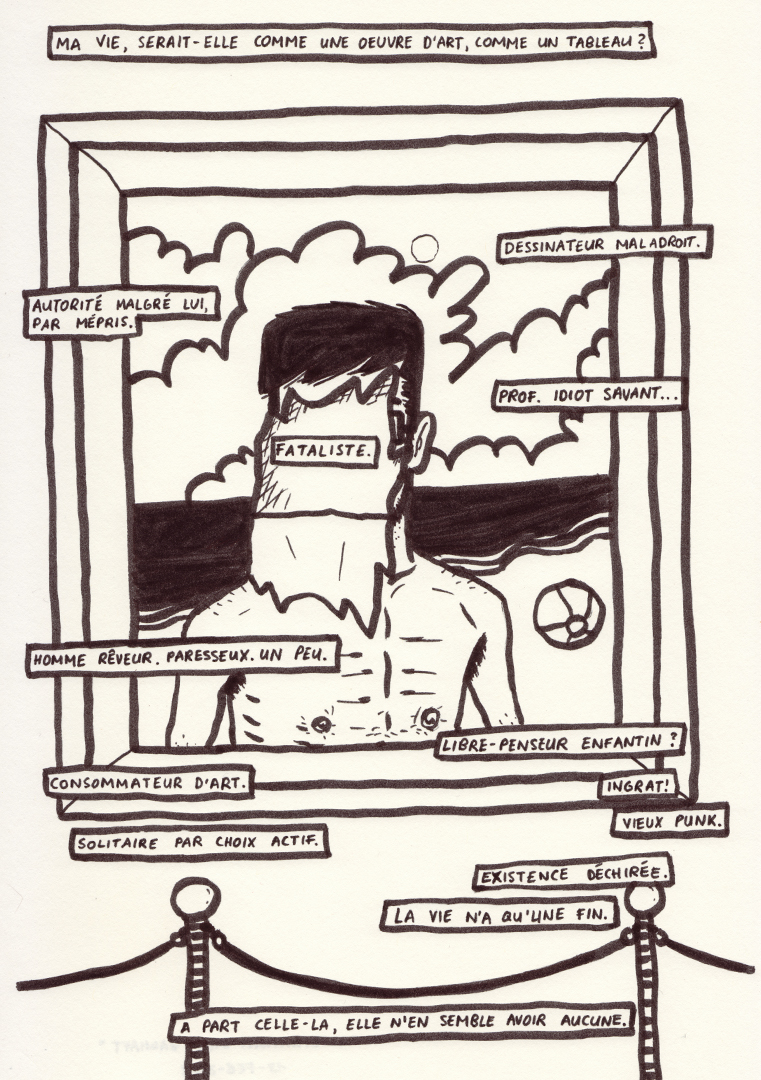 MA VIE, SERAIT-ELLE COMME UNE OEUVRE D'ART, COMME UN TABLEAU?
DESSINATEUR MALADROIT.
AUTORITÉ MALGRÉ LUI,
PAR MÉPRIS.
PROF. IDIOT SAVANT...
FATALISTE.
HOMME RÊVEUR. PARESSEUX. UN PEU.
LIBRE-PENSEUR ENFANTIN?
CONSOMMATEUR D'ART.
INGRAT!
VIEUX PUNK.
SOLITAIRE PAR CHOIX ACTIF.
EXISTENCE DÉCHIRÉE.
LA VIE N'A QU'UNE FIN.
A PART CELLE-LA, ELLE N'EN SEMBLE AVOIR AUCUNE.